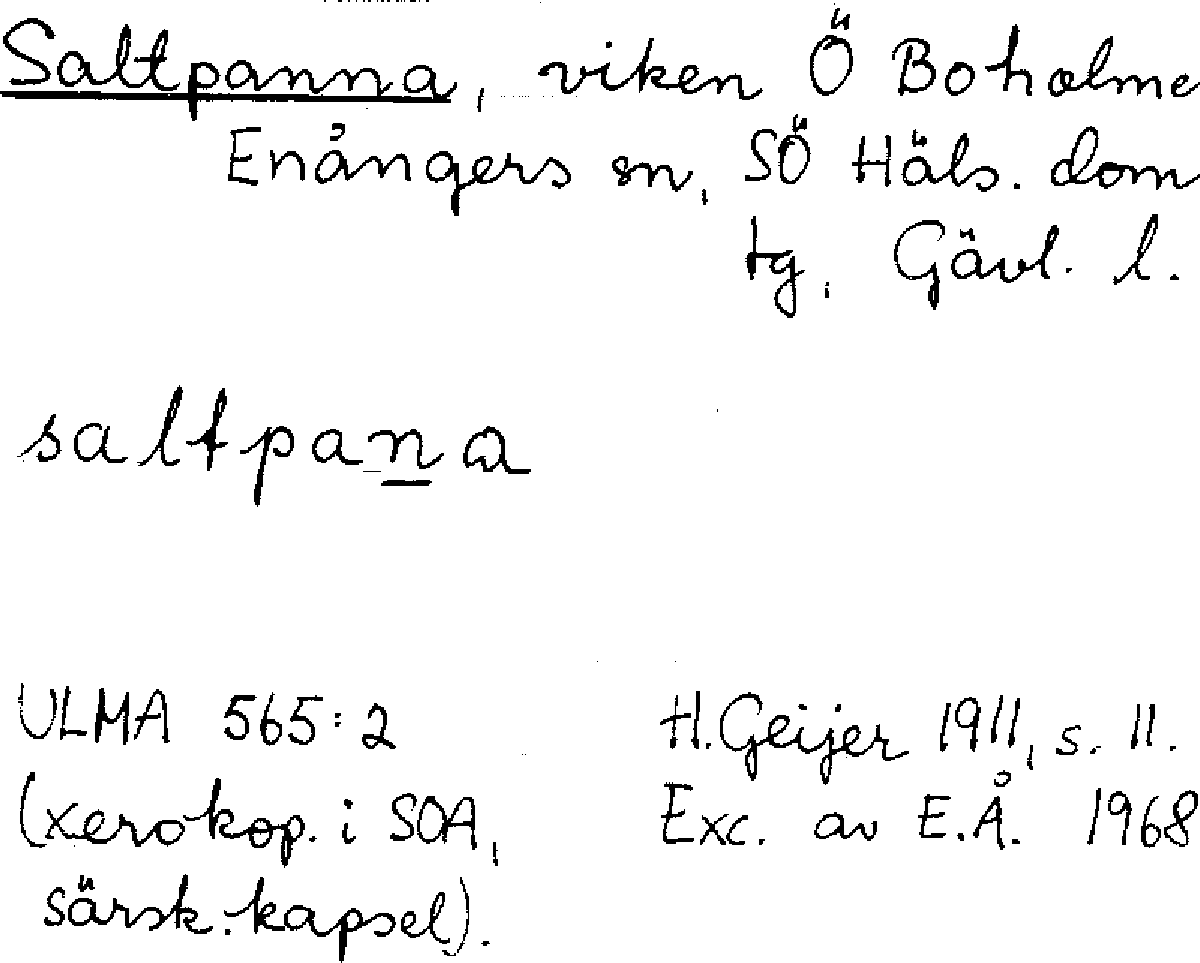 Saltpanna, viken Ö Boholme
Enångers sn, SÖ Häls. dom
tg, Gävl. l.
saltpana
ULMA 565:2
(xerokop. i SOA,
särsk. kapsel).
H. Geijer 1911, s. 11.
Exc. av E.Å. 1968